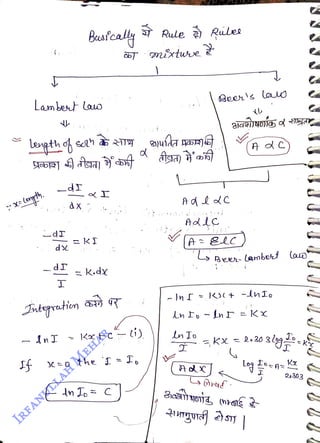 Basically ये Rule दो Rules
का mixture है
Lambert law
length of soln के साथ आपतित प्रकाश की
प्रकाश की तीव्रता में कमी α तीव्रता में कमी
∵ x = length
-dI/dx α I
-dI/dx = KI
-dI/I = K.dx
Integration करने पर
- ln I = Kx + C — (i)
If x = 0 the I = I₀
- ln I₀ = C
Beer's law
अवशोषणांक α सान्द्रता
A α C
A α l α C
A α l C
A = ƐlC
↳ Beer-Lambert law
- ln I = Kx + -ln I₀
ln I₀ - ln I = Kx
ln I₀/I = Kx = 2.303 log I₀/I = Kx
A α x
log I₀/I = A = Kx/2.303
अवशोषणांक लम्बाई के
समानुपाती होगा |
IRFANULLAH MEHAR